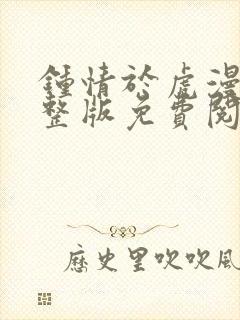 鍾情於虎漫
整版免費閱
歷史里吹吹風